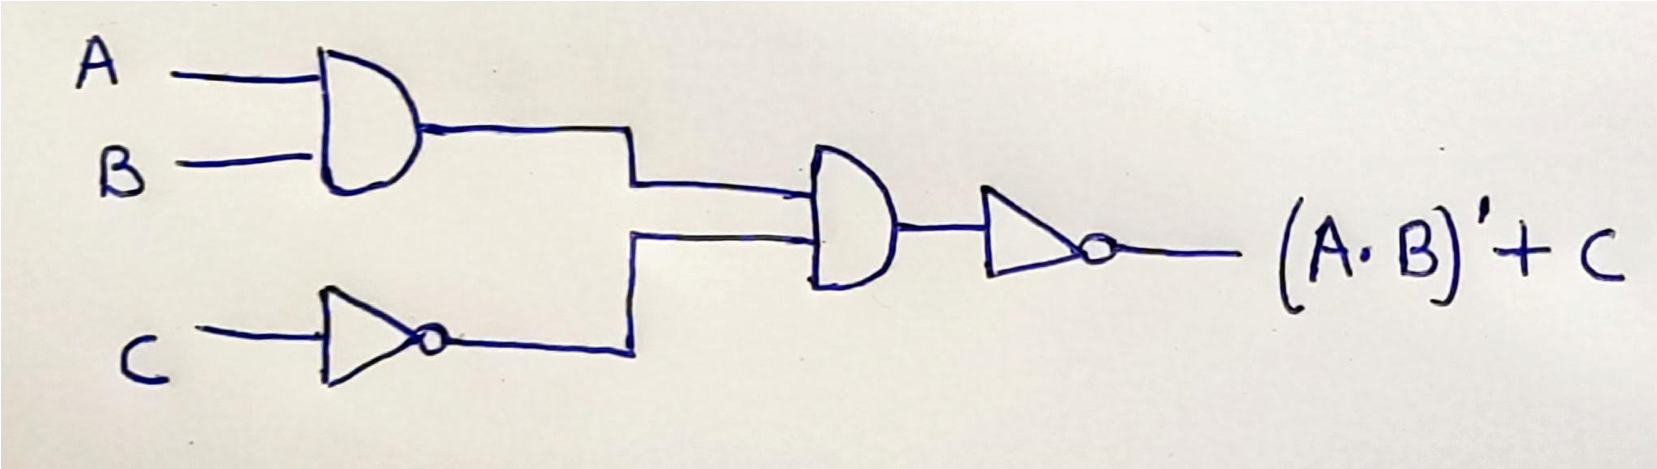 A
B
C
(A·B)'+C